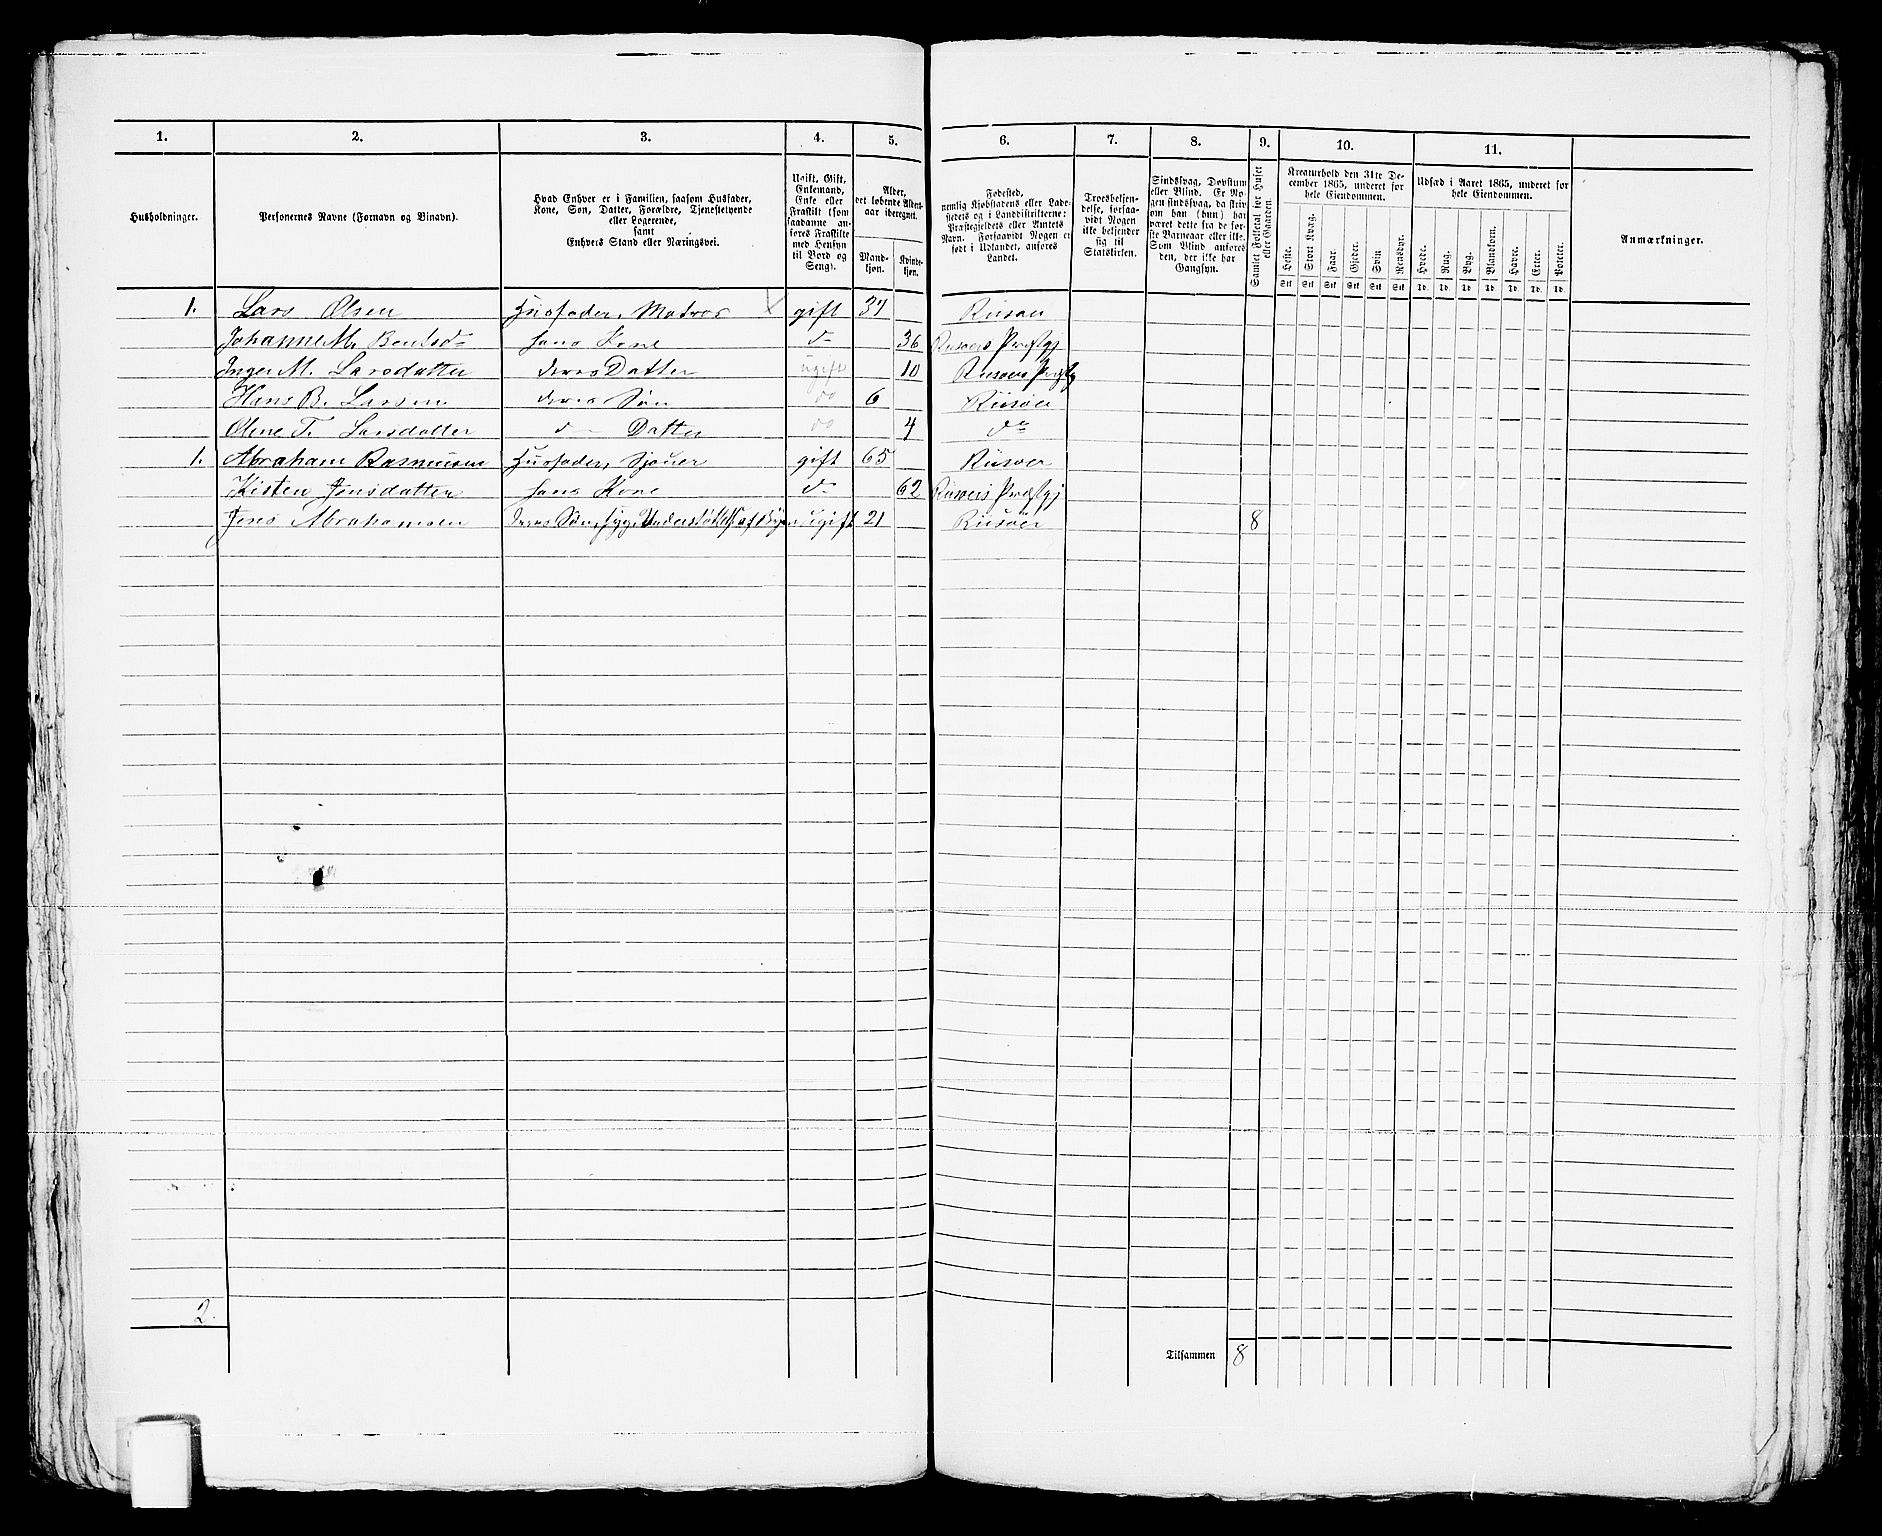 1. 2. 3. 4. 5. 6. 7. 8. 9. 10. 11.
Husholdninger.
Personernes Navne (Fornavn og Binavn).
Hvad Enhver er i Familien, saasom Husfader,
Kone, Søn, Datter, Forældre, Tjenestetyende
eller Logerende,
samt
Enhvers Stand eller Næringsvei.
Ugift, Gift,
Enkemand,
Enke eller
Fraskilt (som
saadanne an-
føres Fraskilte
med Hensyn
til Bord og
Seng).
Alder,
det løbende Alders-
aar iberegnet.
Mand-
kjøn.
Kvinde-
kjøn.
Fødested,
nemlig Kjøbstadens eller Lade-
stedets og i Landdistrikterne:
Præstegjeldets eller Amtets
Navn. Forsaavidt Nogen er
født i Udlandet, anføres
Landet.
Troesbekjen-
delse, forsaa-
vidt Nogen
ikke bekjender
sig til
Statskirken.
Sindssvag, Døvstum
eller Blind. Er No-
gen sindssvag, da skriv
om han (hun) har
været dette fra de før-
ste Barneaar eller ikke.
Som Blind anføres
den, der ikke har
Gangsyn.
Samlet Folketal for Huset
eller Gaarden.
Kreaturhold den 31te De-
cember 1865, underet for
hele Eiendommen.
Heste. Stort Kvæg. Faar. Gjeder. Svin Rensdyr.
Stk Stk Stk Stk Stk Stk
Udsæd i Aaret 1865, underet for
hele Eiendommen.
Hvede. Rug. Byg. Blandkorn. Havre. Erter. Poteter.
Td. Td. Td. Td. Td. Td. Td.
Anmærkninger.
1. Lars Olsen Husfader, Matros gift 37 Riisøer
Johanne M. Bentsd hans Kone do 36 Riisøers Præstgj
Inger M. Larsdatter deres Datter ugift 10 Riisøers Præstgj
Hans B. Larsen deres Søn do 6 Riisøer
Oline T. Larsdatter do Datter do 4 do
1. Abraham Rasmusen Husfader, Sjouer gift 65 Riisøer
Kisten Jensdatter hans Kone do 62 Riisøers Præstgj
Jens Abrahamsen deres Søn, syg, Understøttes af Byen ugift 21 Riisøer 8
2.
Tilsammen 8